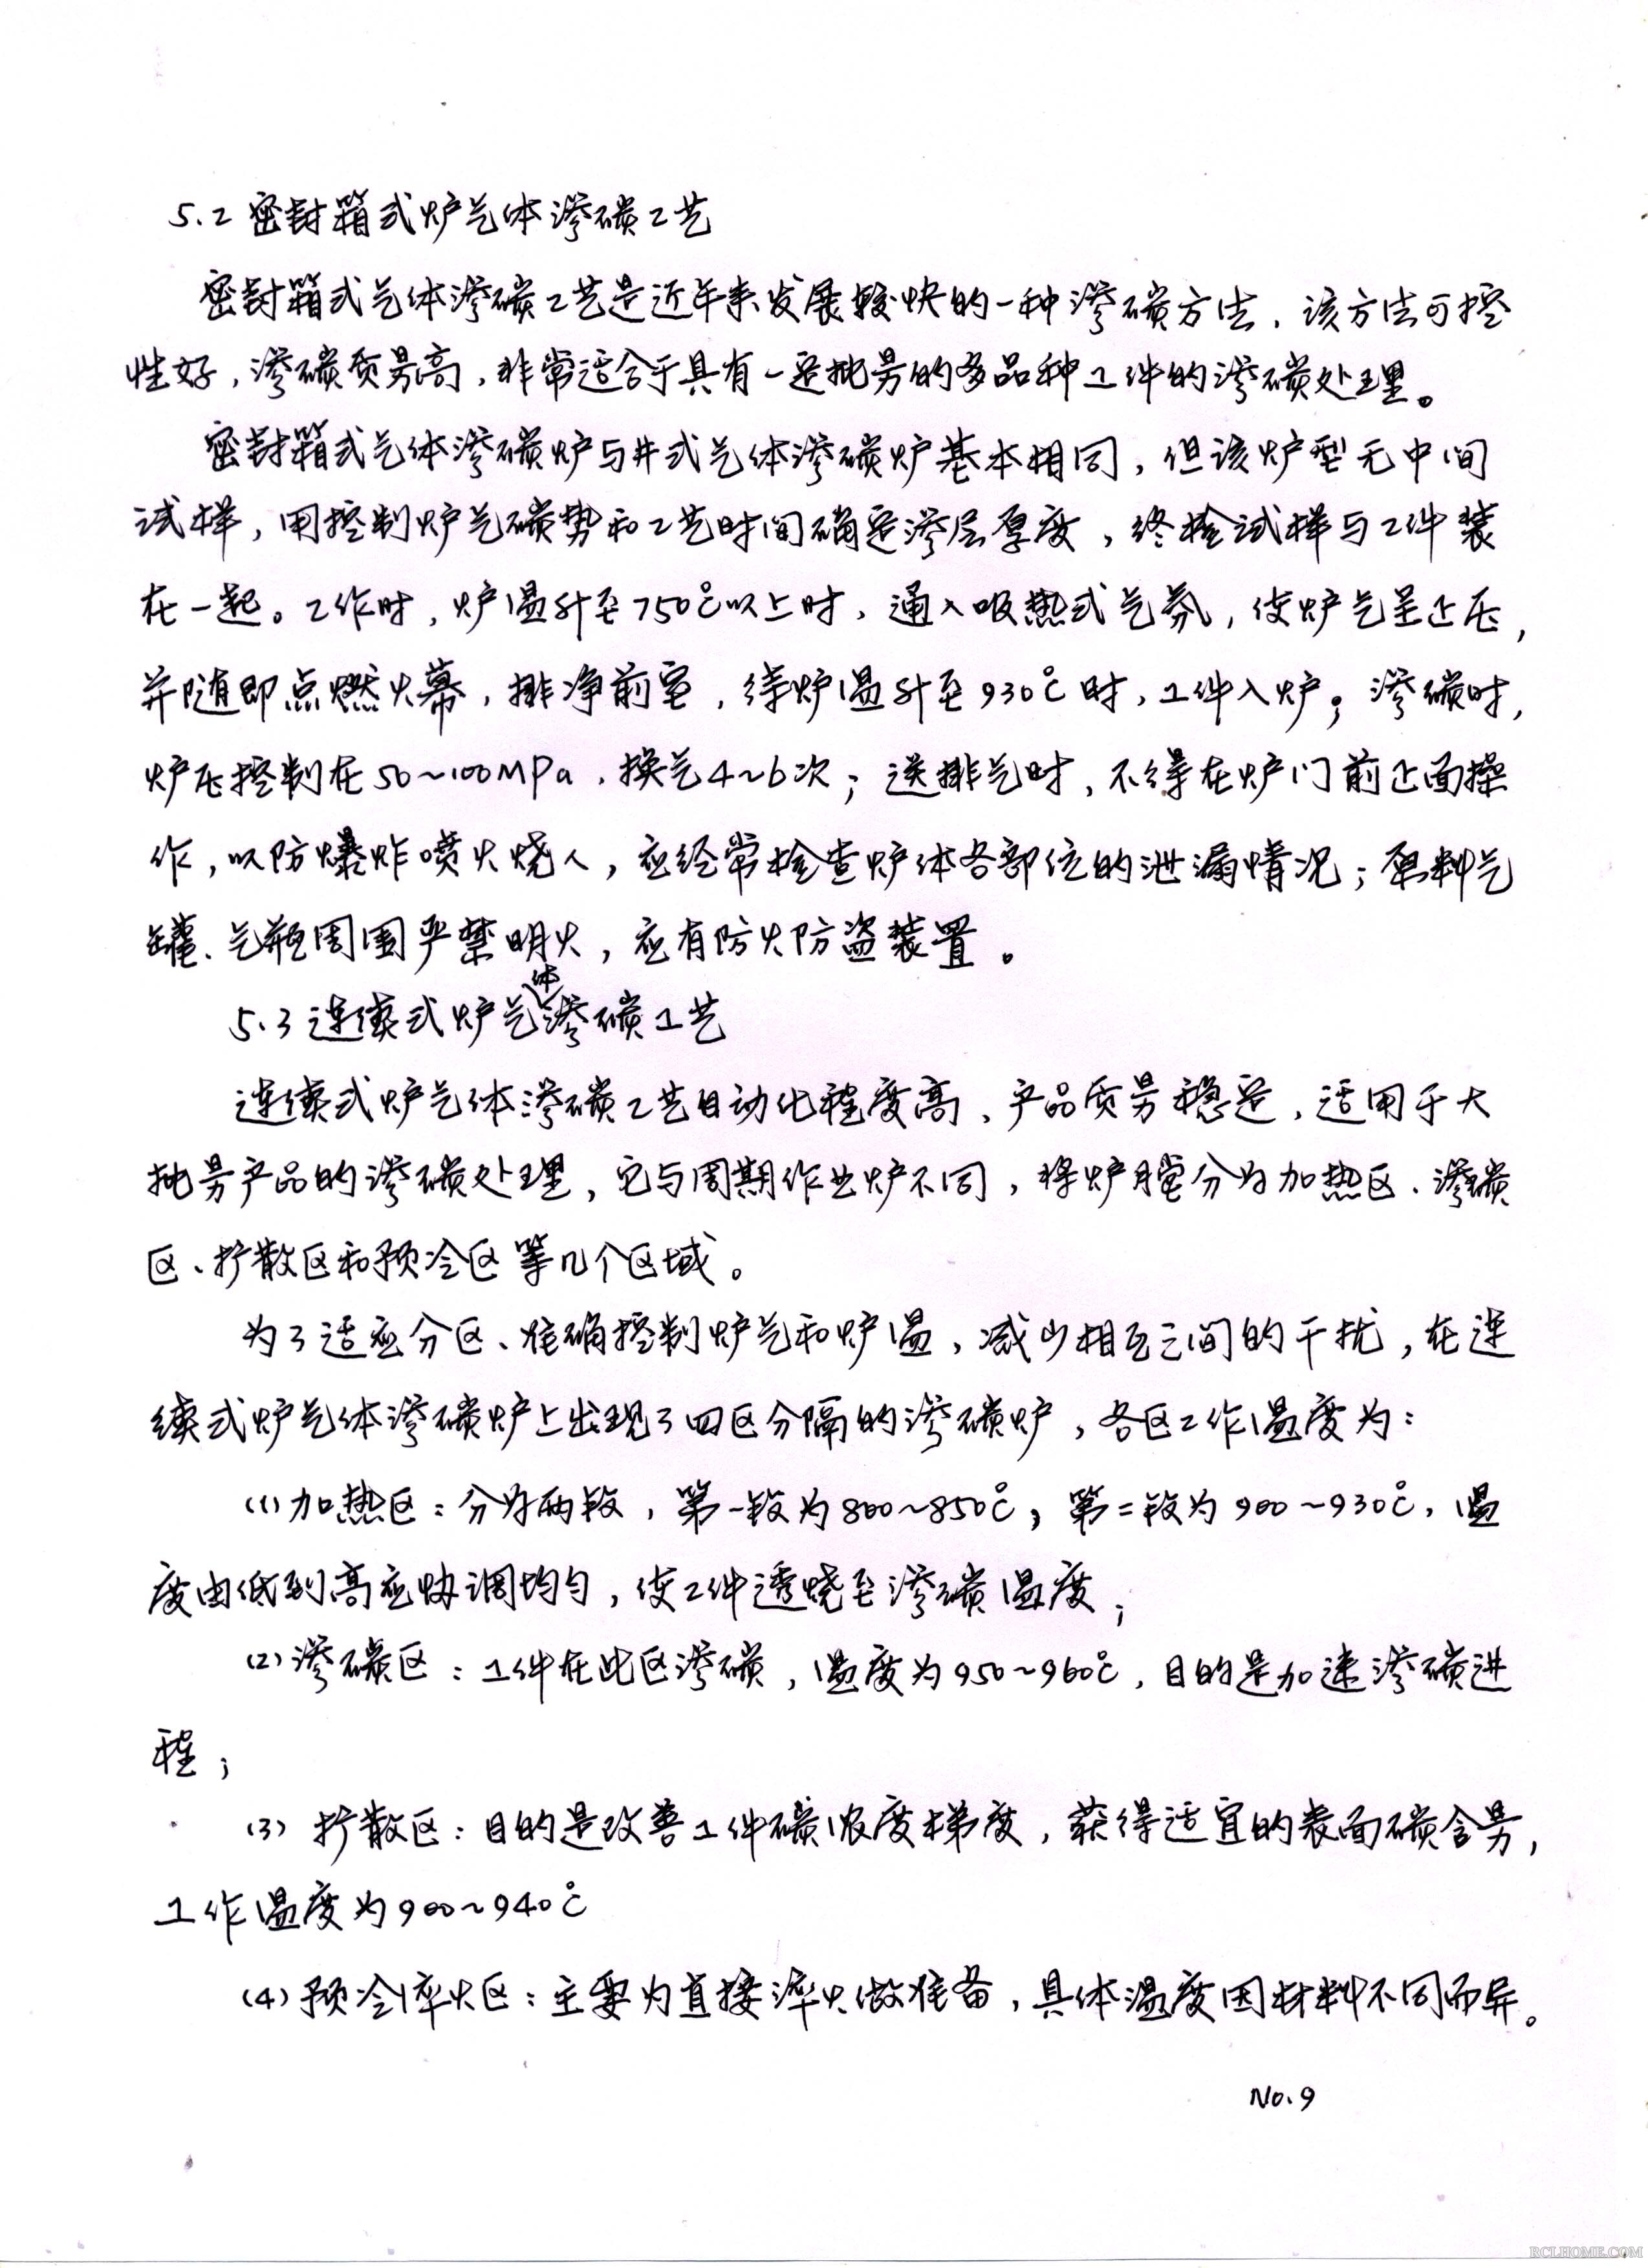 5.2 密封箱式炉气体渗碳工艺
密封箱式气体渗碳工艺是近年来发展较快的一种渗碳方法，该方法可控
性好，渗碳质量高，非常适合于具有一定批量的多品种工件的渗碳处理。
密封箱式气体渗碳炉与井式气体渗碳炉基本相同，但该炉型无中间
试样，用控制炉气碳势和工艺时间确定渗层厚度，终检试样与工件装
在一起。工作时，炉温升至750℃以上时，通入吸热式气氛，使炉气呈正压，
并随即点燃火幕，排净前室，待炉温升至930℃时，工件入炉；渗碳时，
炉压控制在50~100MPa，换气4~6次；送排气时，不得在炉门前正面操
作，以防爆炸喷火烧人，应经常检查炉体各部位的泄漏情况；原料气
罐、气瓶周围严禁明火，应有防火防盗装置。
5.3 连续式炉气体渗碳工艺
连续式炉气体渗碳工艺自动化程度高，产品质量稳定，适用于大
批量产品的渗碳处理，它与周期作业炉不同，将炉膛分为加热区、渗碳
区、扩散区和预冷区等几个区域。
为了适应分区、准确控制炉气和炉温，减少相互之间的干扰，在连
续式炉气体渗碳炉上出现了四区分隔的渗碳炉，各区工作温度为：
(1) 加热区：分为两段，第一段为800~850℃，第二段为900~930℃，温
度由低到高应协调均匀，使工件透烧至渗碳温度；
(2) 渗碳区：工件在此区渗碳，温度为950~960℃，目的是加速渗碳进
程；
(3) 扩散区：目的是改善工件碳浓度梯度，获得适宜的表面碳含量，
工作温度为900~940℃
(4) 预冷淬火区：主要为直接淬火做准备，具体温度因材料不同而异。
No.9
RCLHOME.COM